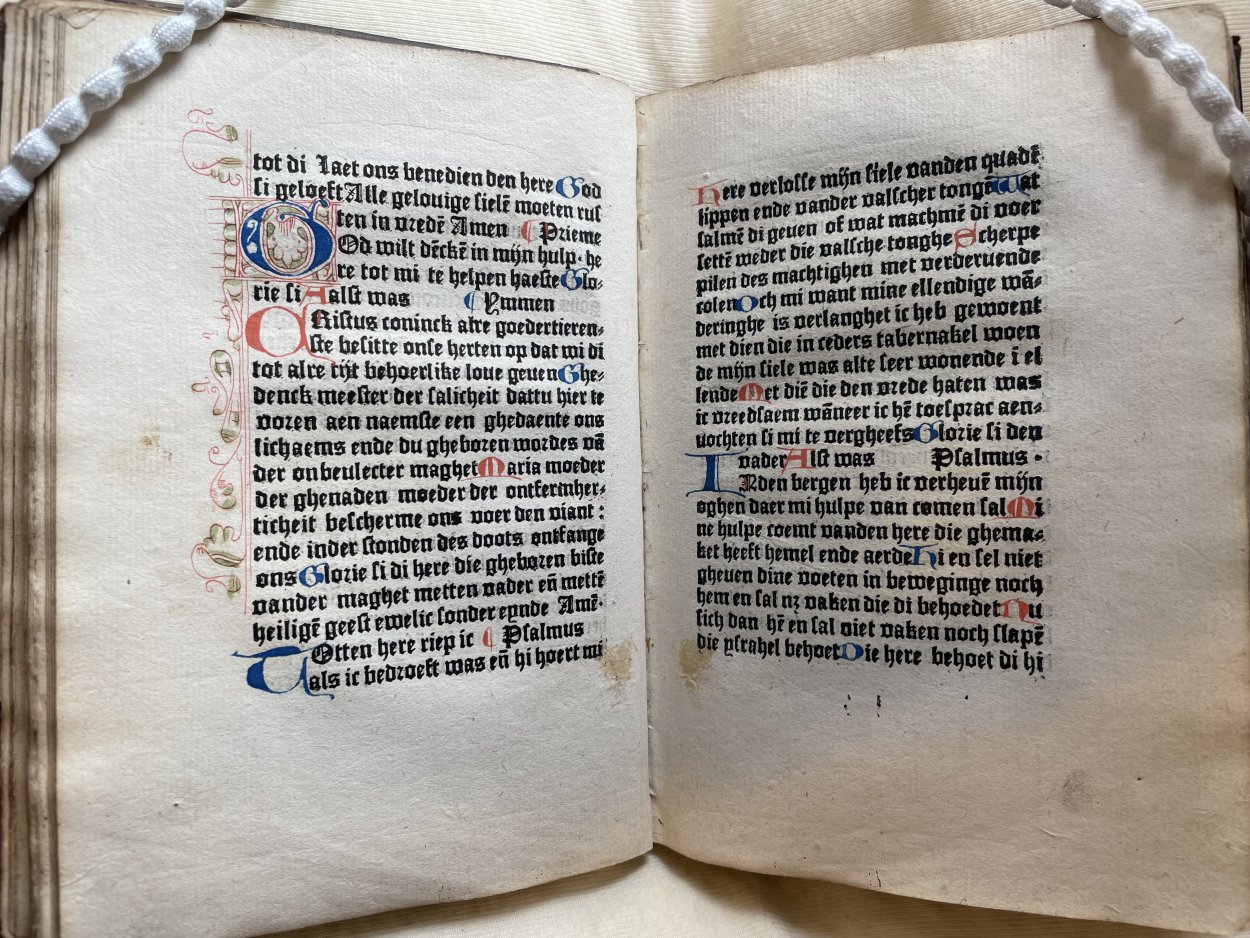 tot di Laet ons benedien den here God
si geloeft Alle gelouige sielē moeten rus
ten in vredē Amen ¶ Prieme
GOd wilt dēckē in mijn hulp· he
re tot mi te helpen haeste Glo⸗
rie si Aalst was ¶ Ymmen
CRistus coninck alre goedertieren⸗
ste besitte onse herten op dat wi di
tot alre tijt behoerlike loue geuen Ghe⸗
denck meester der salicheit dattu hier te
voren aen naemste een ghedaente ons
lichaems ende du gheboren wordes vā
der onbeulecter maghet Maria moeder
der ghenaden moeder der ontfermher⸗
ticheit bescherme ons voer den viant :
ende inder stonden des doots ontfange
ons Glorie si di here die gheboren biste
vander maghet metten vader eñ mettē
heiligē geest ewelic sonder eynde Amē·
TOtten here riep ic ¶ Psalmus
als ic bedroeft was eñ hi hoert mi
here verlosse mijn siele vanden quadē
lippen ende vander valscher tongē Wat
salmē di geuen of wat machmē di voer
settē weder die valsche tonghe Scherpe
pilen des machtighen met verderuende
colen Och mi want mine ellendige wā⸗
deringhe is verlanghet ic heb gewoent
met dien die in ceders tabernakel woen
de mijn siele was alte seer wonende ī el
lende Met diē die den vrede haten was
ic vreedsaem wāneer ic hē toesprac aen⸗
vochten si mi te vergheefs Glorie si den
vader Alst was Psalmus ·
INden bergen heb ic verheuē mijn
oghen daer mi hulpe van comen sal Mi
ne hulpe coemt vanden here die ghema⸗
ket heeft hemel ende aerde Hi en sel niet
gheuen dine voeten in beweginge noch
hem en sal nz vaken die di behoedet Nu
sich dan hē en sal niet vaken noch slapē
die ysrahel behoet Die here behoet di hi